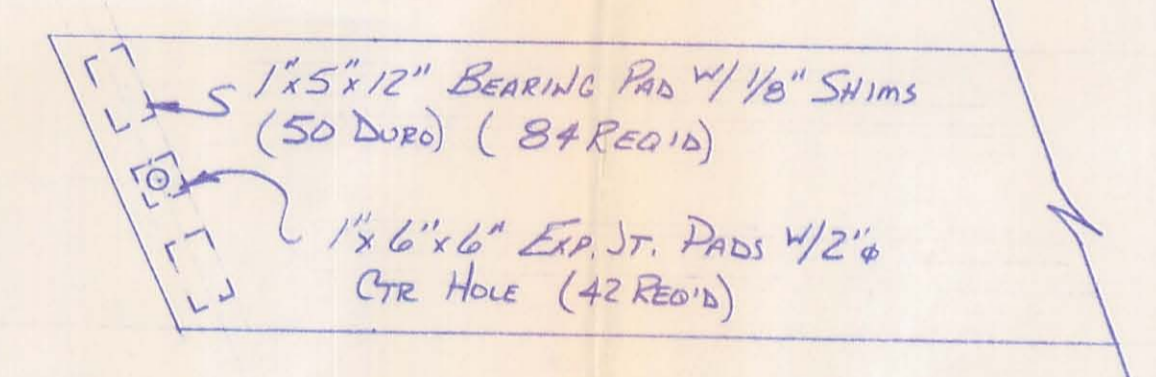 1"x5"x12" BEARING PAD W/ 1/8" SHIMS
(50 DURO) (84 REQ'D)
1"x6"x6" EXP. JT. PADS W/2"φ
CTR HOLE (42 REQ'D)